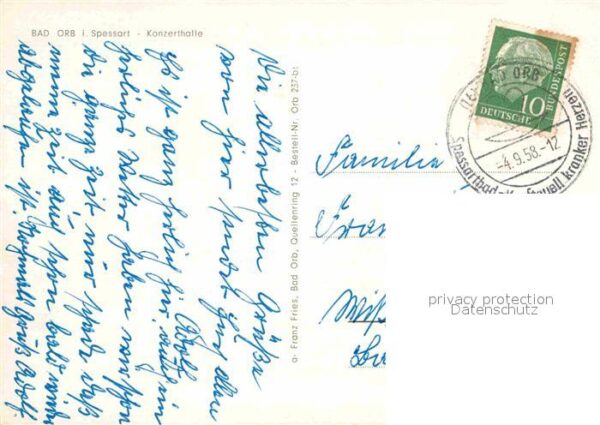 BAD ORB i. Spessart - Konzerthalle
Die allerbesten Grüße
von hier sendet euch allen
Adolf
Es ist ganz herrlich hier, auch im
Wetter haben wir schon
die ganze Zeit nur schade daß
meine Zeit auch schon bald wieder
abgelaufen ist. Nochmals Gruß Adolf.
a- Franz Fries, Bad Orb, Quellenring 12 - Bestell-Nr. Orb 237-b:
DEUTSCHE BUNDESPOST
10
BAD ORB
-4.9.58.-12
Spessartbad kranker Herzen
Familie
privacy protection
Datenschutz